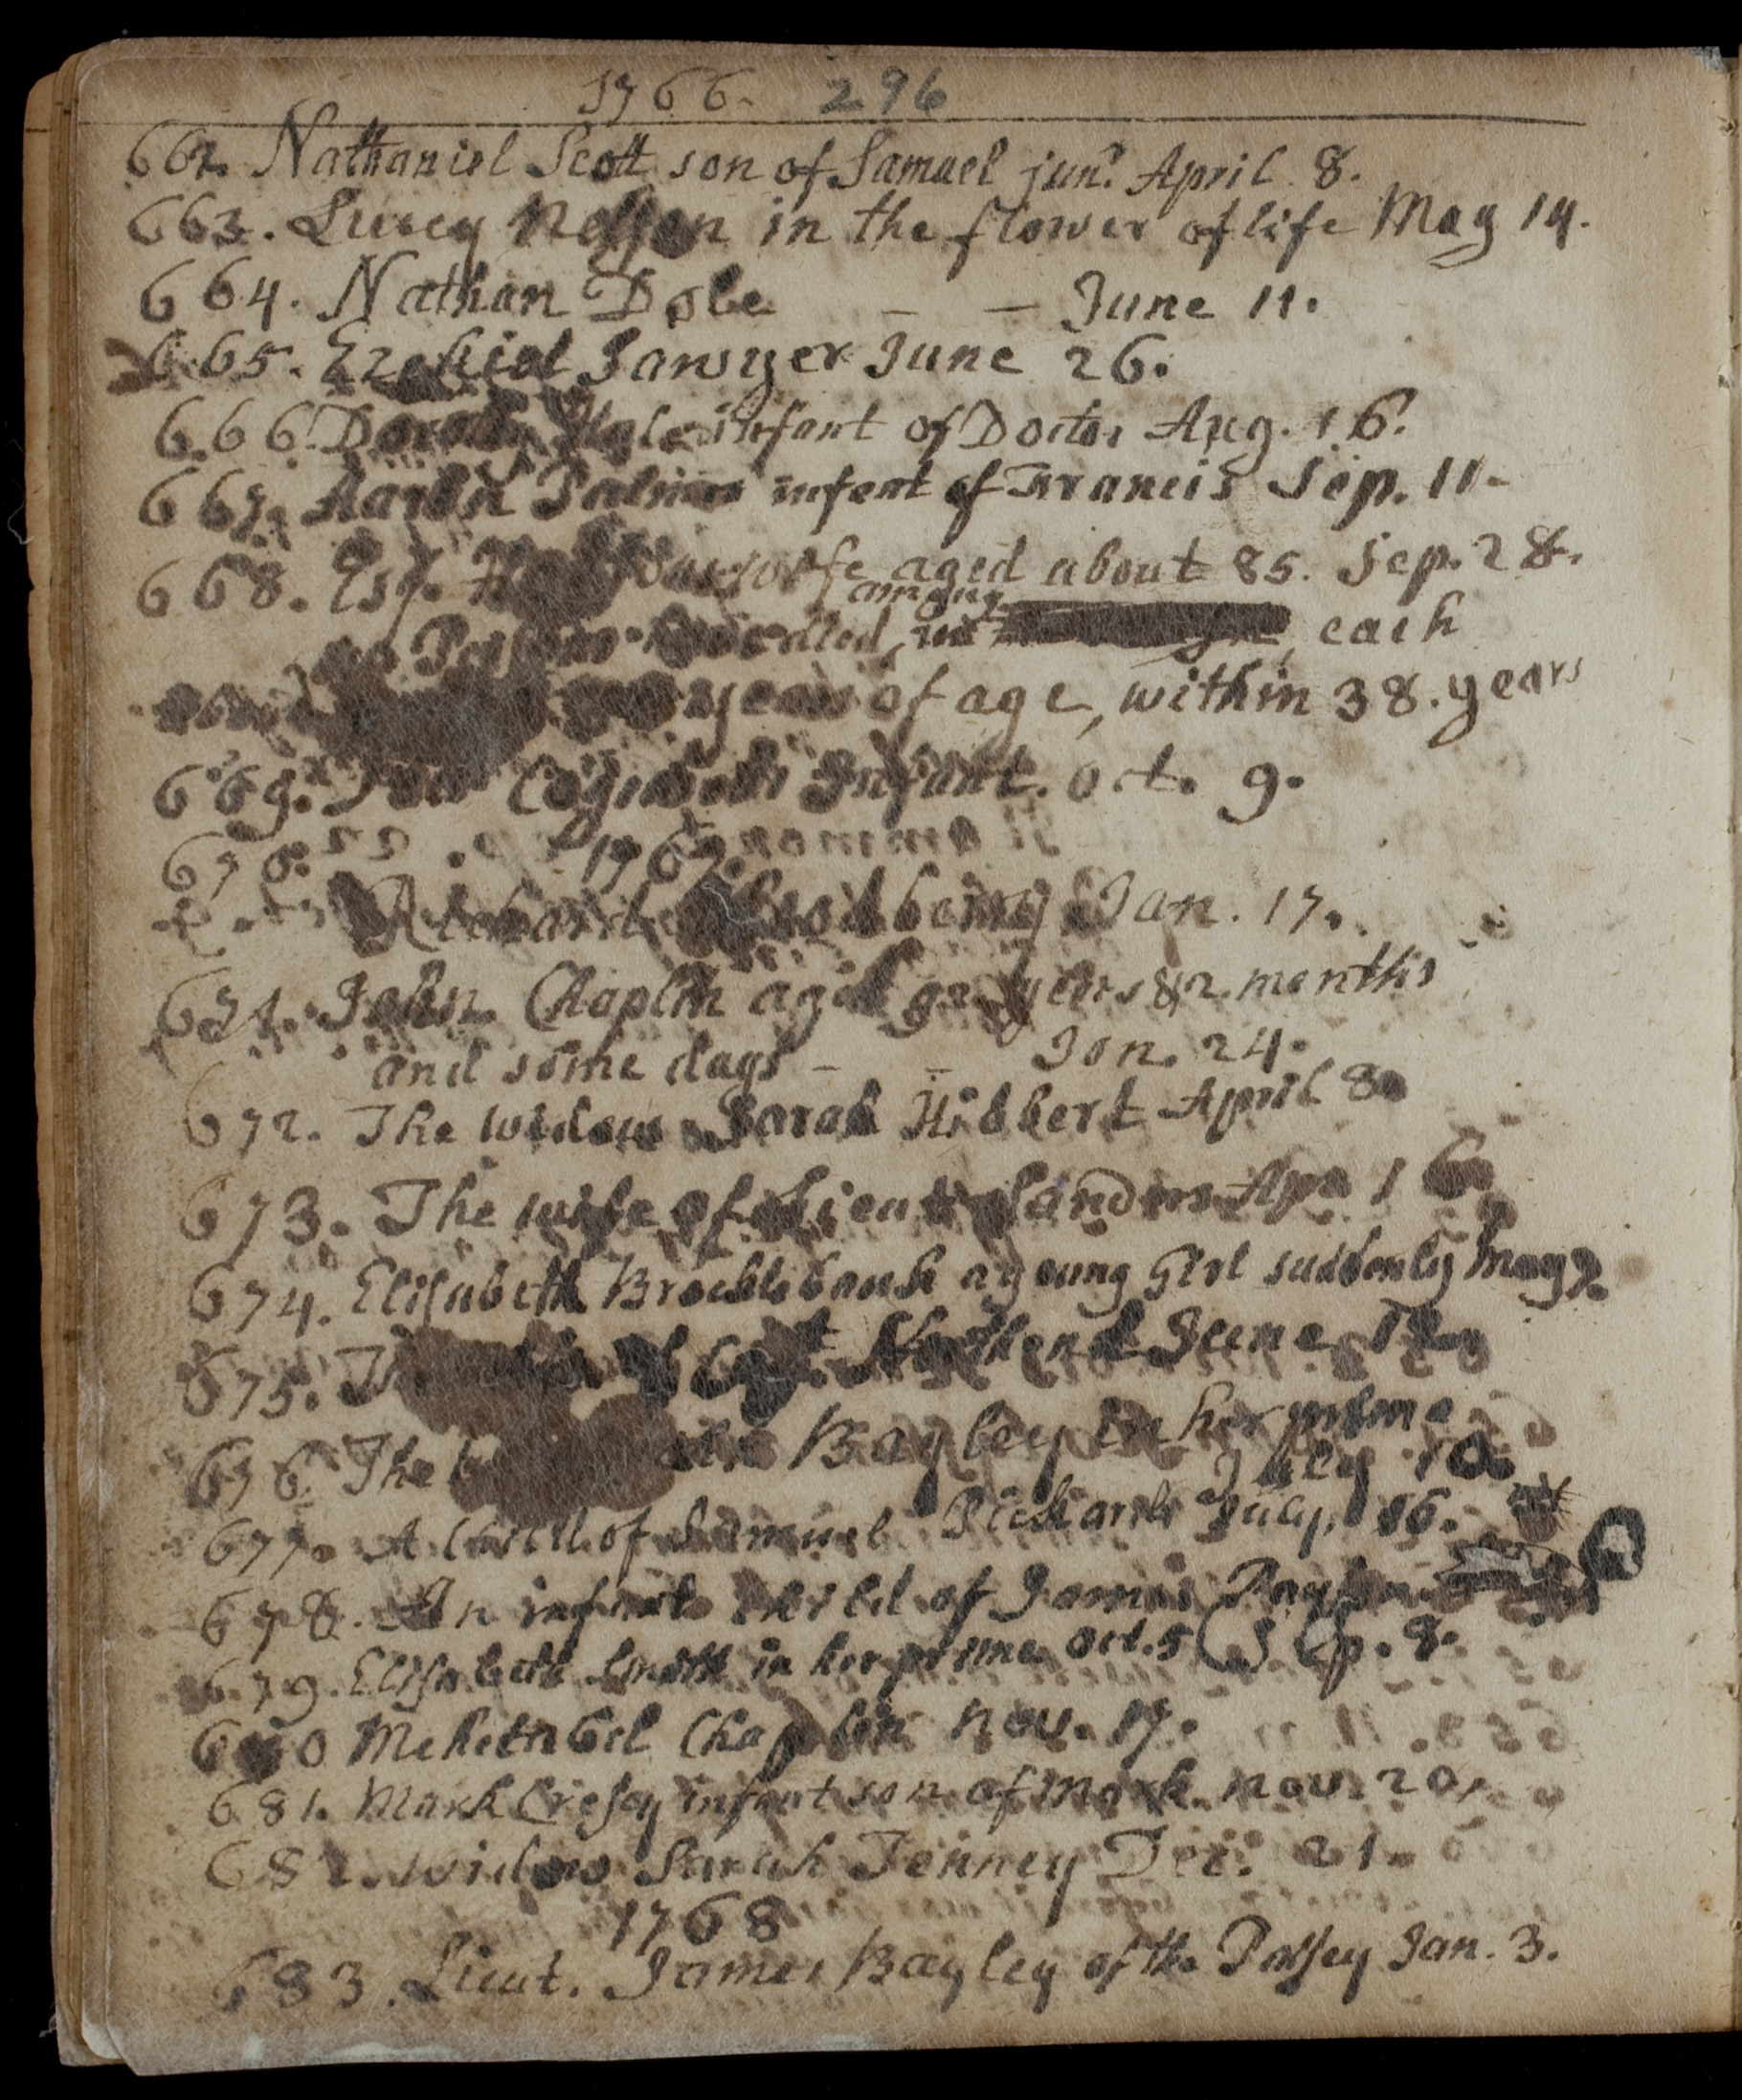 1766. 296
662. Nathaniel Scott son of Samuel junr. April 8.
663. Lucey Nelson in the flower of life May 14.
664. Nathan Dole — — June 11.
665. Ezekiel Sawyer June 26.
666. Hale infant of Doctor Aug. 16.
667. Aaron Palmer infant of Francis Sep. 11.
668. Esq. wife aged about 85. Sep. 28.
among
each
years of age, within 38. years
669. Infant. Oct. 9.
670. 1767.
Richard Jan. 17.
671. John Chaplin aged years & 2 months
and some days — — Jan. 24.
672. The widow Sarah Hibbert April 8.
673. The wife of Lieut Apr. 16.
674. Elisabeth Brocklebank a young Girl suddenly May 7.
675. of Capt June 12.
676 The Bayley in her prime
July 10.
677. A Child of Samuel Pickard July. 16.
678. An infant child of James
679. Elisabeth Smith in her prime Oct. 5 ( Sep. 8.
680 Mehetabel Chaplin nov. 17.
681. Mark Cresey infant son of Mark. nov. 20.
682. widow Sarah Tenney Dec. 21.
1768
683. Lieut. James Bayley of the Palsey Jan. 3.